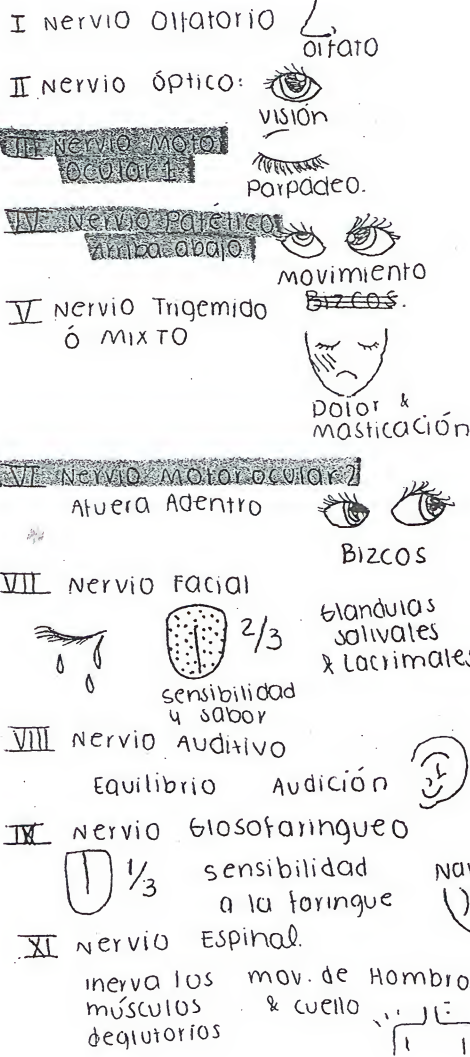 I Nervio Olfatorio
olfato
II Nervio óptico:
visión
III Nervio Motor
ocular 1
Parpadeo.
IV Nervio Patético
Arriba abajo
Movimiento
Bizcos.
V Nervio Trigemido
ó MIXTO
Dolor &
masticación
VI Nervio Motor ocular 2
Afuera Adentro
Bizcos
VII Nervio Facial
2/3
Glandulas
salivales
& Lacrimales
sensibilidad
y sabor
VIII Nervio Auditivo
Equilibrio Audición
IX Nervio Glosofaringueo
1/3
sensibilidad
a la faringue
XI Nervio Espinal.
inerva los
músculos
deglutorios
mov. de Hombro
& cuello